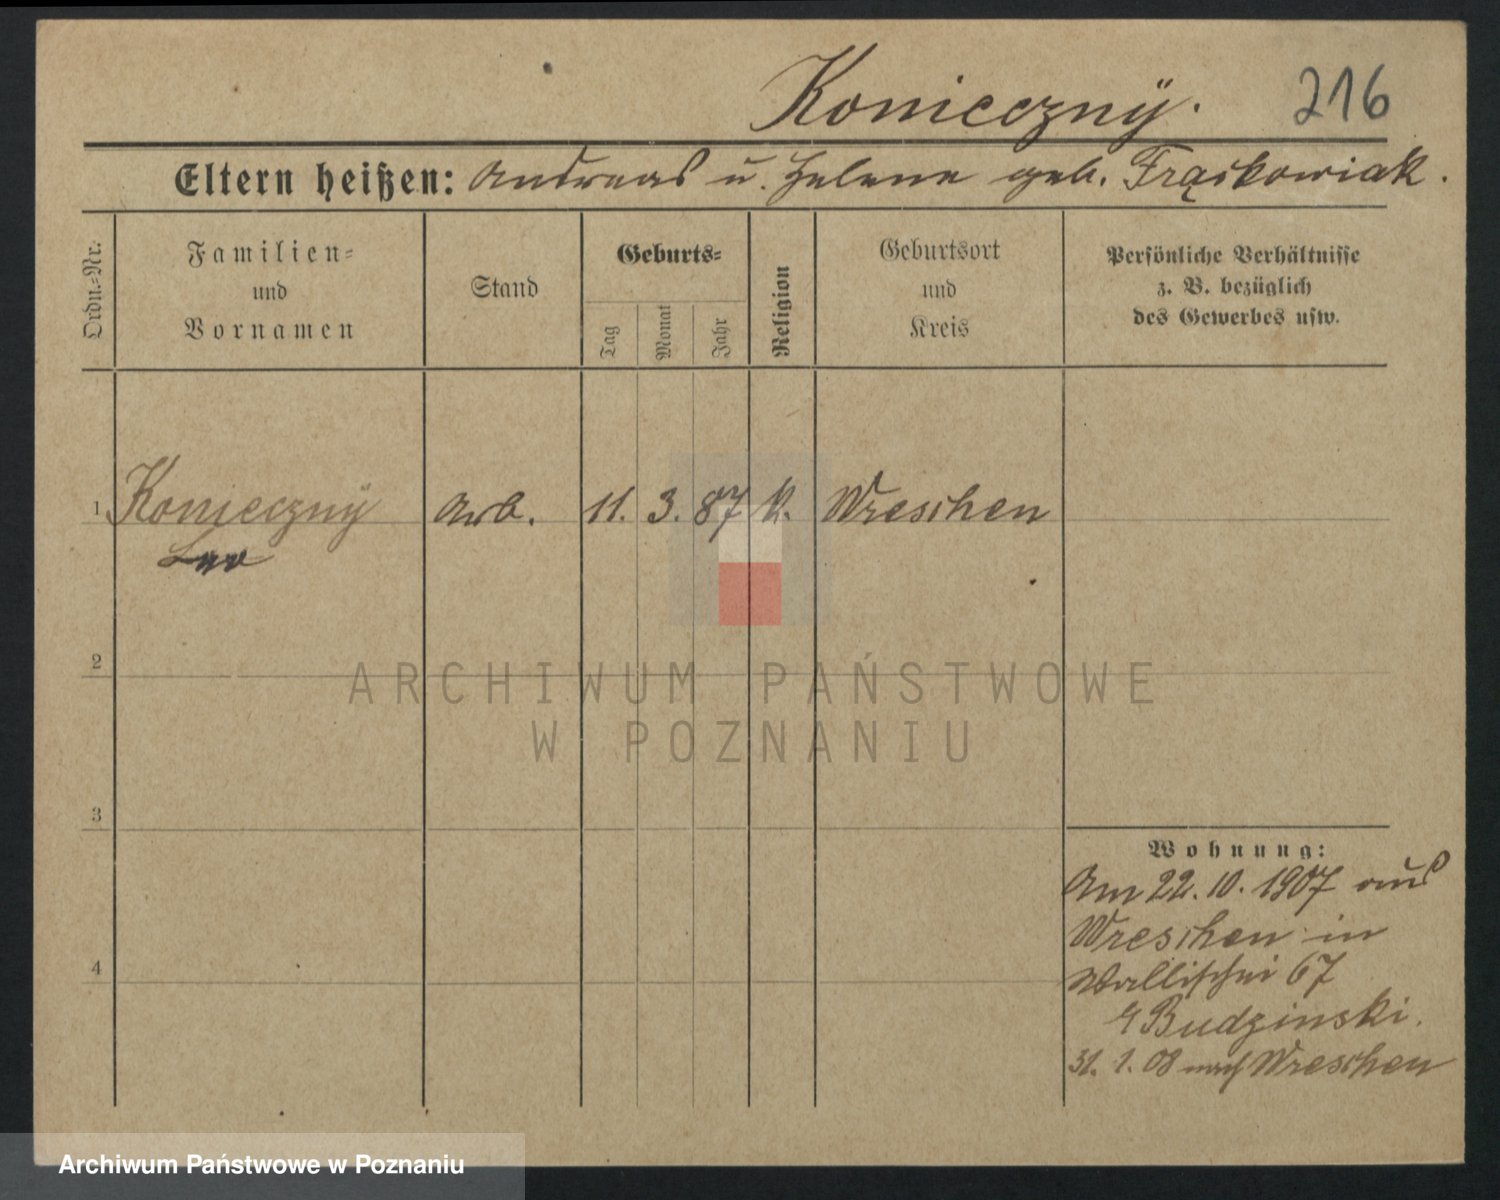 Konieczny. 216
Eltern heißen: Andreas u. Helene geb. Frąckowiak.
Ordn.-Nr.
Familien-
und
Vornamen
Stand
Geburts-
Tag
Monat
Jahr
Religion
Geburtsort
und
Kreis
Persönliche Verhältnisse
z. B. bezüglich
des Gewerbes usw.
1 Konieczny Arb. 11. 3. 87 k. Wreschen
Leo
2
ARCHIWUM PAŃSTWOWE
W POZNANIU
3
Wohnung:
Am 22. 10. 1907 aus
Wreschen in
Wallischei 67
Budzinski.
4
31. 1. 08 nach Wreschen
Archiwum Państwowe w Poznaniu